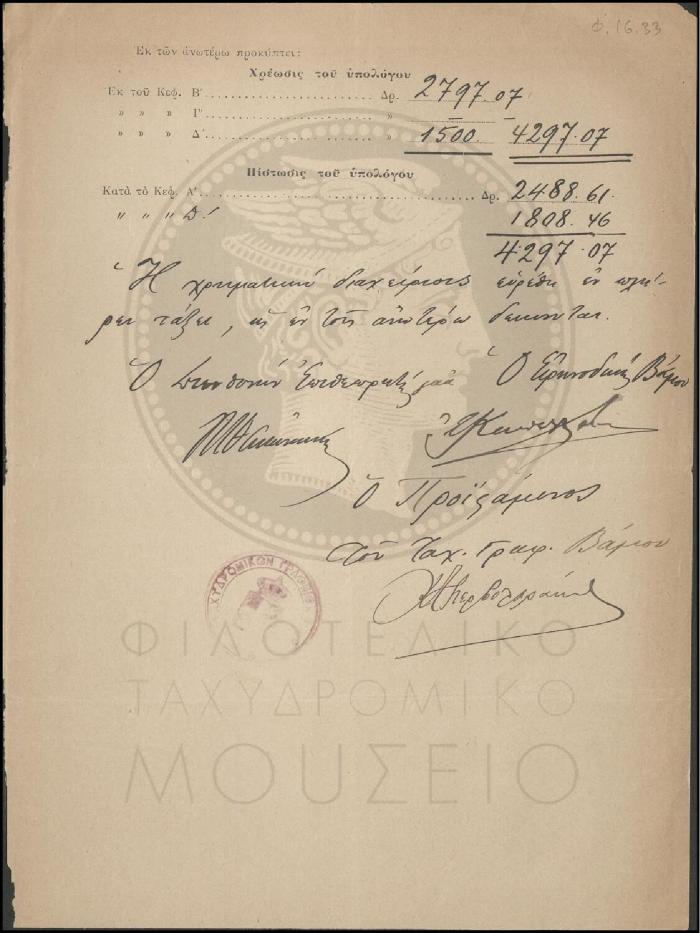 Φ. 16.33
Ἐκ τῶν ἀνωτέρω προκύπτει:
Χρέωσις τοῦ ὑπολόγου
Ἐκ τοῦ Κεφ. Β' Δρ. 2797.07
» » » Γ' » —  —
» » » Δ' » 1500. 4297.07
Πίστωσις τοῦ ὑπολόγου
Κατὰ τὸ Κεφ. Α' Δρ. 2488.61.
" " " Δ' 1808.46
4297.07
Ἡ χρηματικὴ διαχείρισις εὑρέθη ἐν πλή-
ρει τάξει, ὡς ἐν τοῖς ἀνωτέρω δείκνυται.
Ὁ Ἐπιθεωρητὴς Ὁ Εἰρηνοδίκης Βάμου
Ὁ Προϊστάμενος
τοῦ Ταχ. Γραφ. Βάμου
ΧΥΔΡΟΜΙΚΟΝ ΓΡΑΦΕΙΟΝ
ΦΙΛΟΤΕΛΙΚΟ
ΤΑΧΥΔΡΟΜΙΚΟ
ΜΟΥΣΕΙΟ